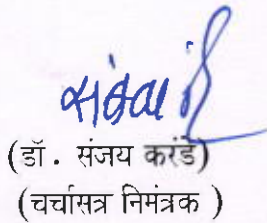 (डॉ. संजय करंडे)
(चर्चासत्र निमंत्रक )